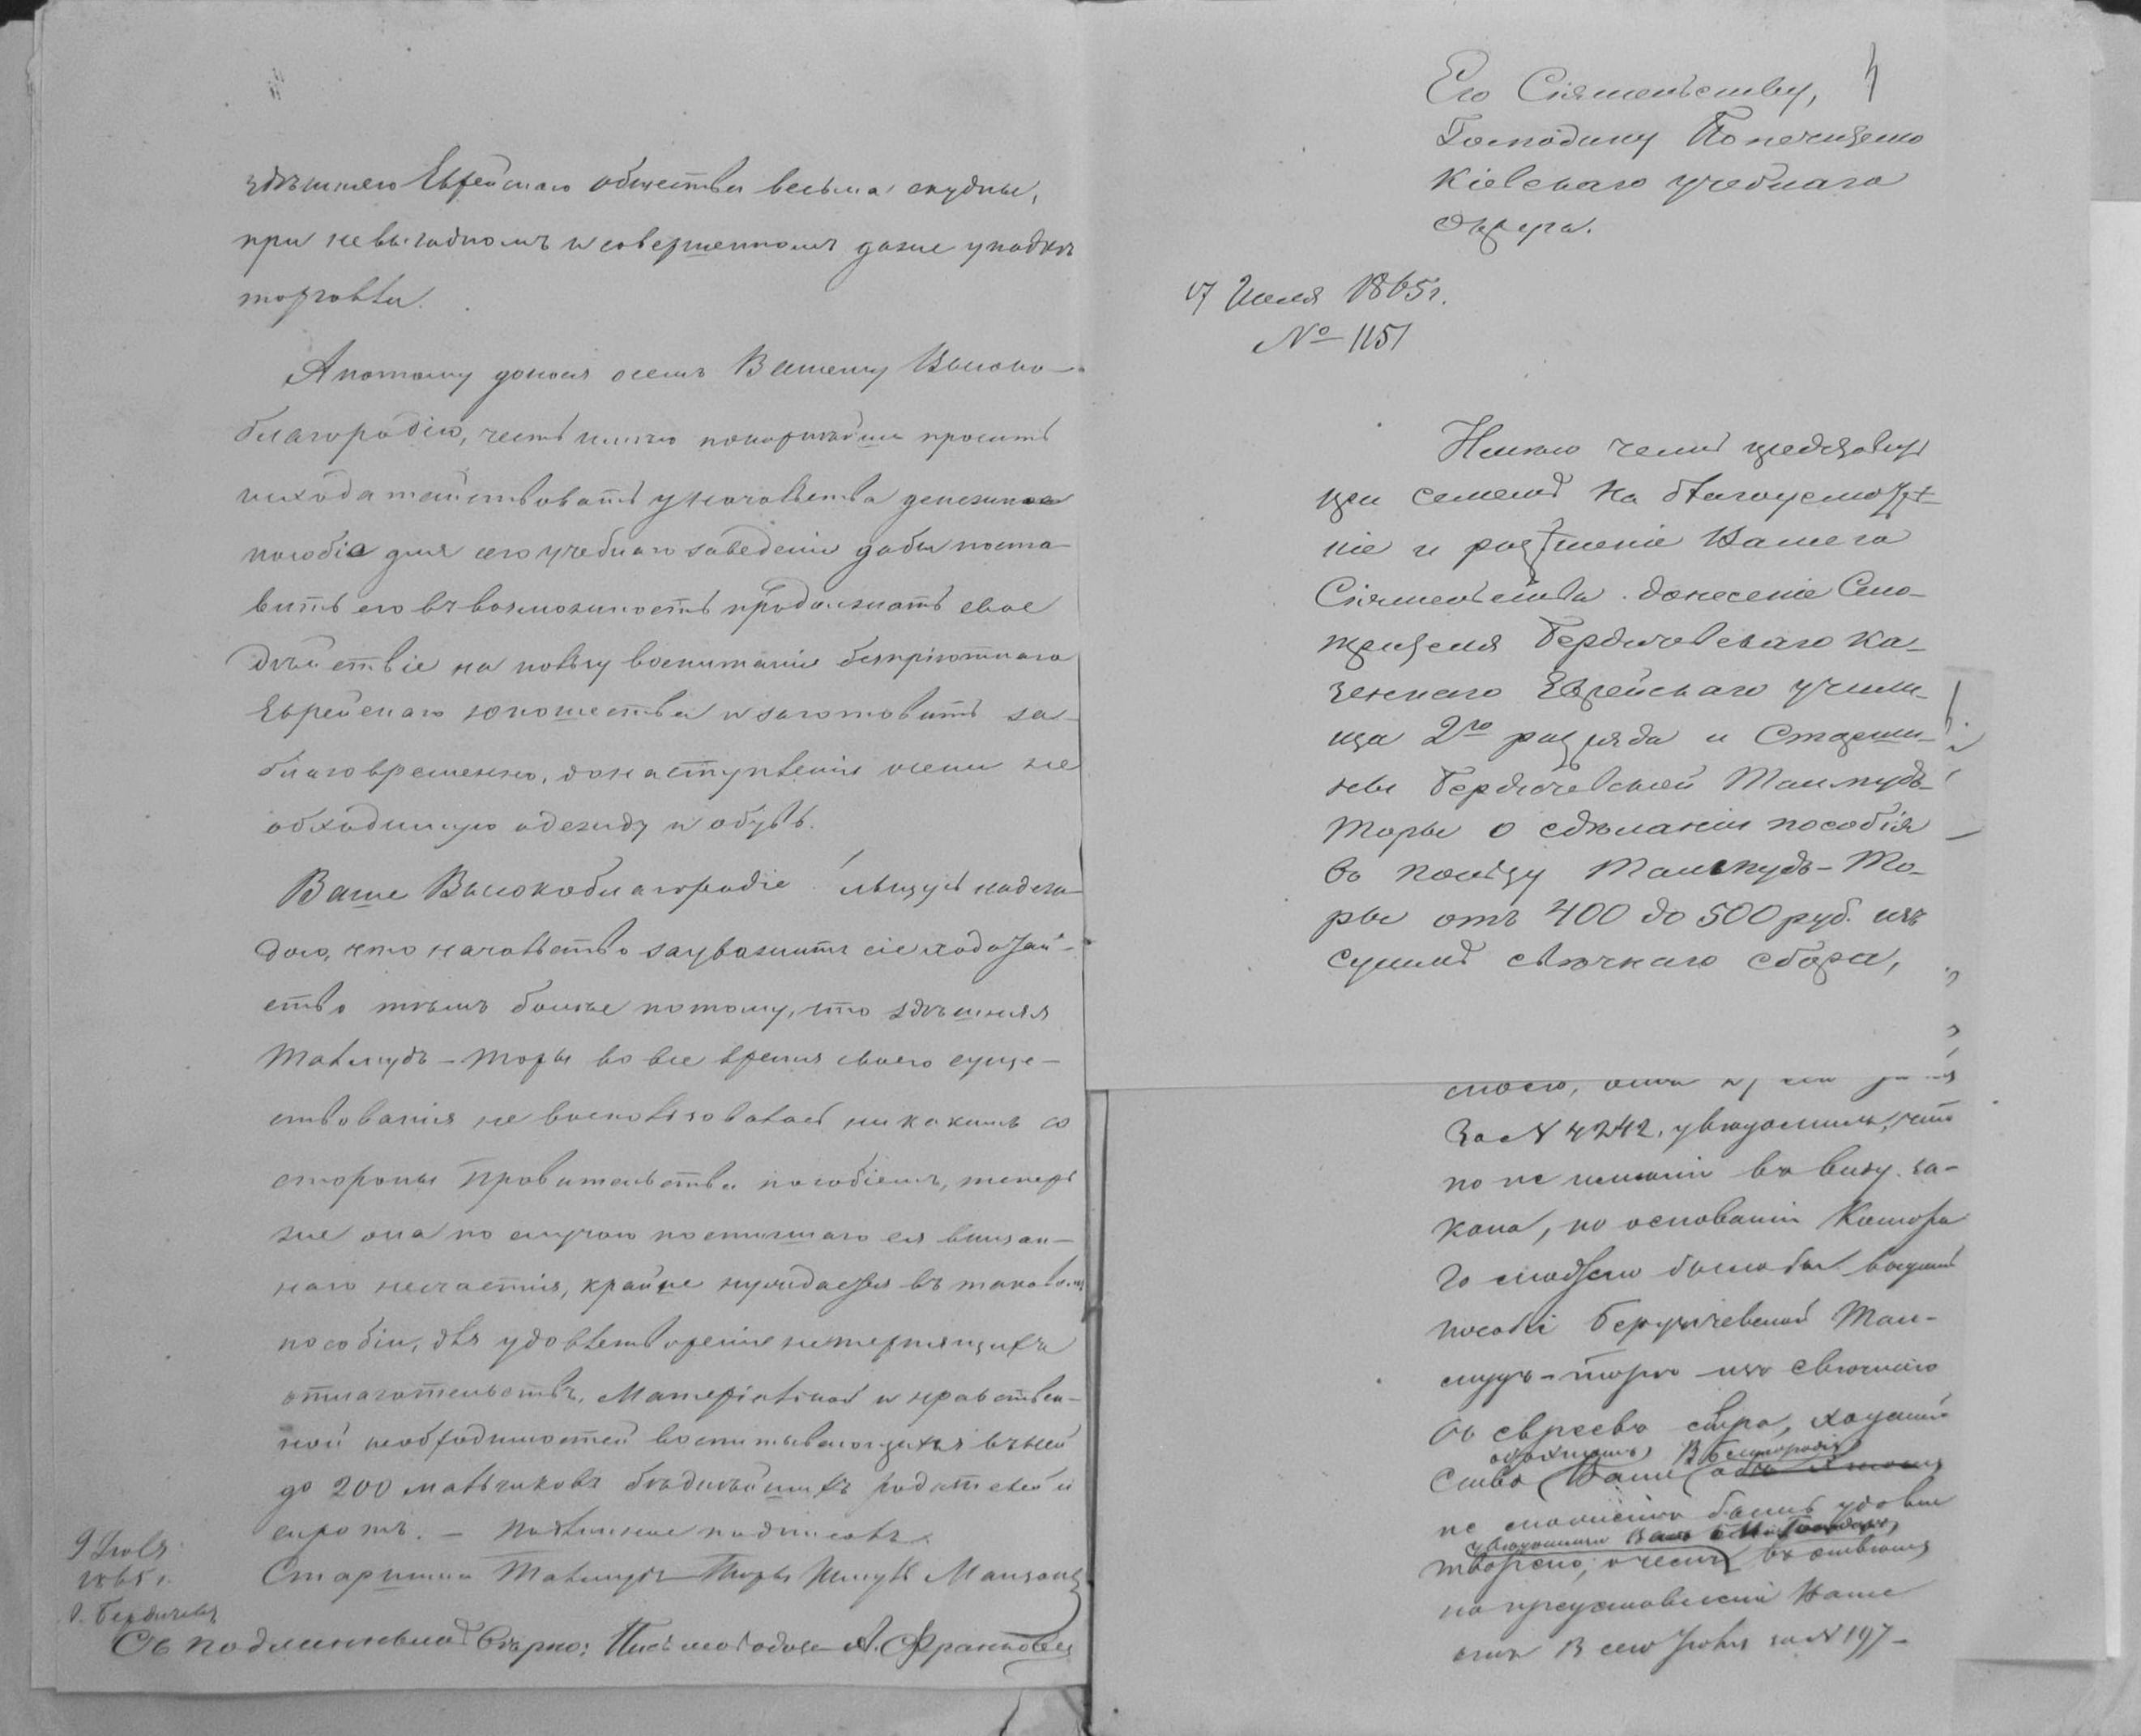 здѣшняго Еврейскаго общества весьма скудны,
при невыгодномъ и совершенномъ даже упадкѣ
торговли.
А потому донося о семъ Вашему Высоко-
благородію, честь имѣю покорнѣйше просить
исходатайствовать у началь­ства денежное
пособіе для сего учебнаго заведенія дабы поста-
вить его въ возможность продолжать свое
дѣйствіе на пользу воспитанія безпріютнаго
Еврейскаго юношества и заготовить за-
благовременно, до наступленія осени не
обходимую одежду и обувь.
Ваше Высокоблагородіе! льщусь надеж-
дою, что начальство зауважитъ сіе ходатай-
ство тѣмъ болѣе потому, что здѣшняя
Талмудъ-Тора во все время своего суще-
ствованія не воспользовалась никакимъ со
стороны Правительства пособіемъ, теперь
же она по случаю постигшаго ея внезап-
наго несчастія, крайне нуждается въ таковомъ
пособіи, для удовлетворенія нетерпящихъ
отлагательствъ, Матеріальной и нравствен-
ной необходимостей воспитывающихся въ ней
до 200 мальчиковъ бѣднѣйшихъ родителей и
сиротъ. — Подлинное подписалъ
Старшина Талмудъ Торы
9 Іюля
1865 г.
г. Бердичевъ
Съ подлиннымъ вѣрно: Письмоводъ А. Франковъ
4
Его Сіятельству,
Господину Попечителю
Кіевскаго учебнаго
округа.
17 Іюля 1865 г.
№ 1151
Имѣю честь представить
при семъ на благоусмотрѣ-
ніе и разрѣшеніе Вашего
Сіятельства донесеніе Смо-
трителя Бердичевскаго ка-
зеннаго Еврейскаго учили-
ща 2го разряда и Старши-
ны Бердичевской Талмудъ-
Торы о сдѣланіи пособія
въ пользу Талмудъ-То-
ры отъ 400 до 500 руб. изъ
суммъ свѣчнаго сбора,
за № 4242, увѣдомилъ, что
не имѣя въ виду за-
кона, на основаніи котора
го можно было бы выдать
пособіе Бердичевской Тал-
мудъ-торѣ изъ свѣчнаго
съ евреевъ сбора, ходатай-
ство Ваше
не можетъ быть удовле
творено, о чемъ
на представленіе Ваше
отъ 13 сего Іюля за № 197 —